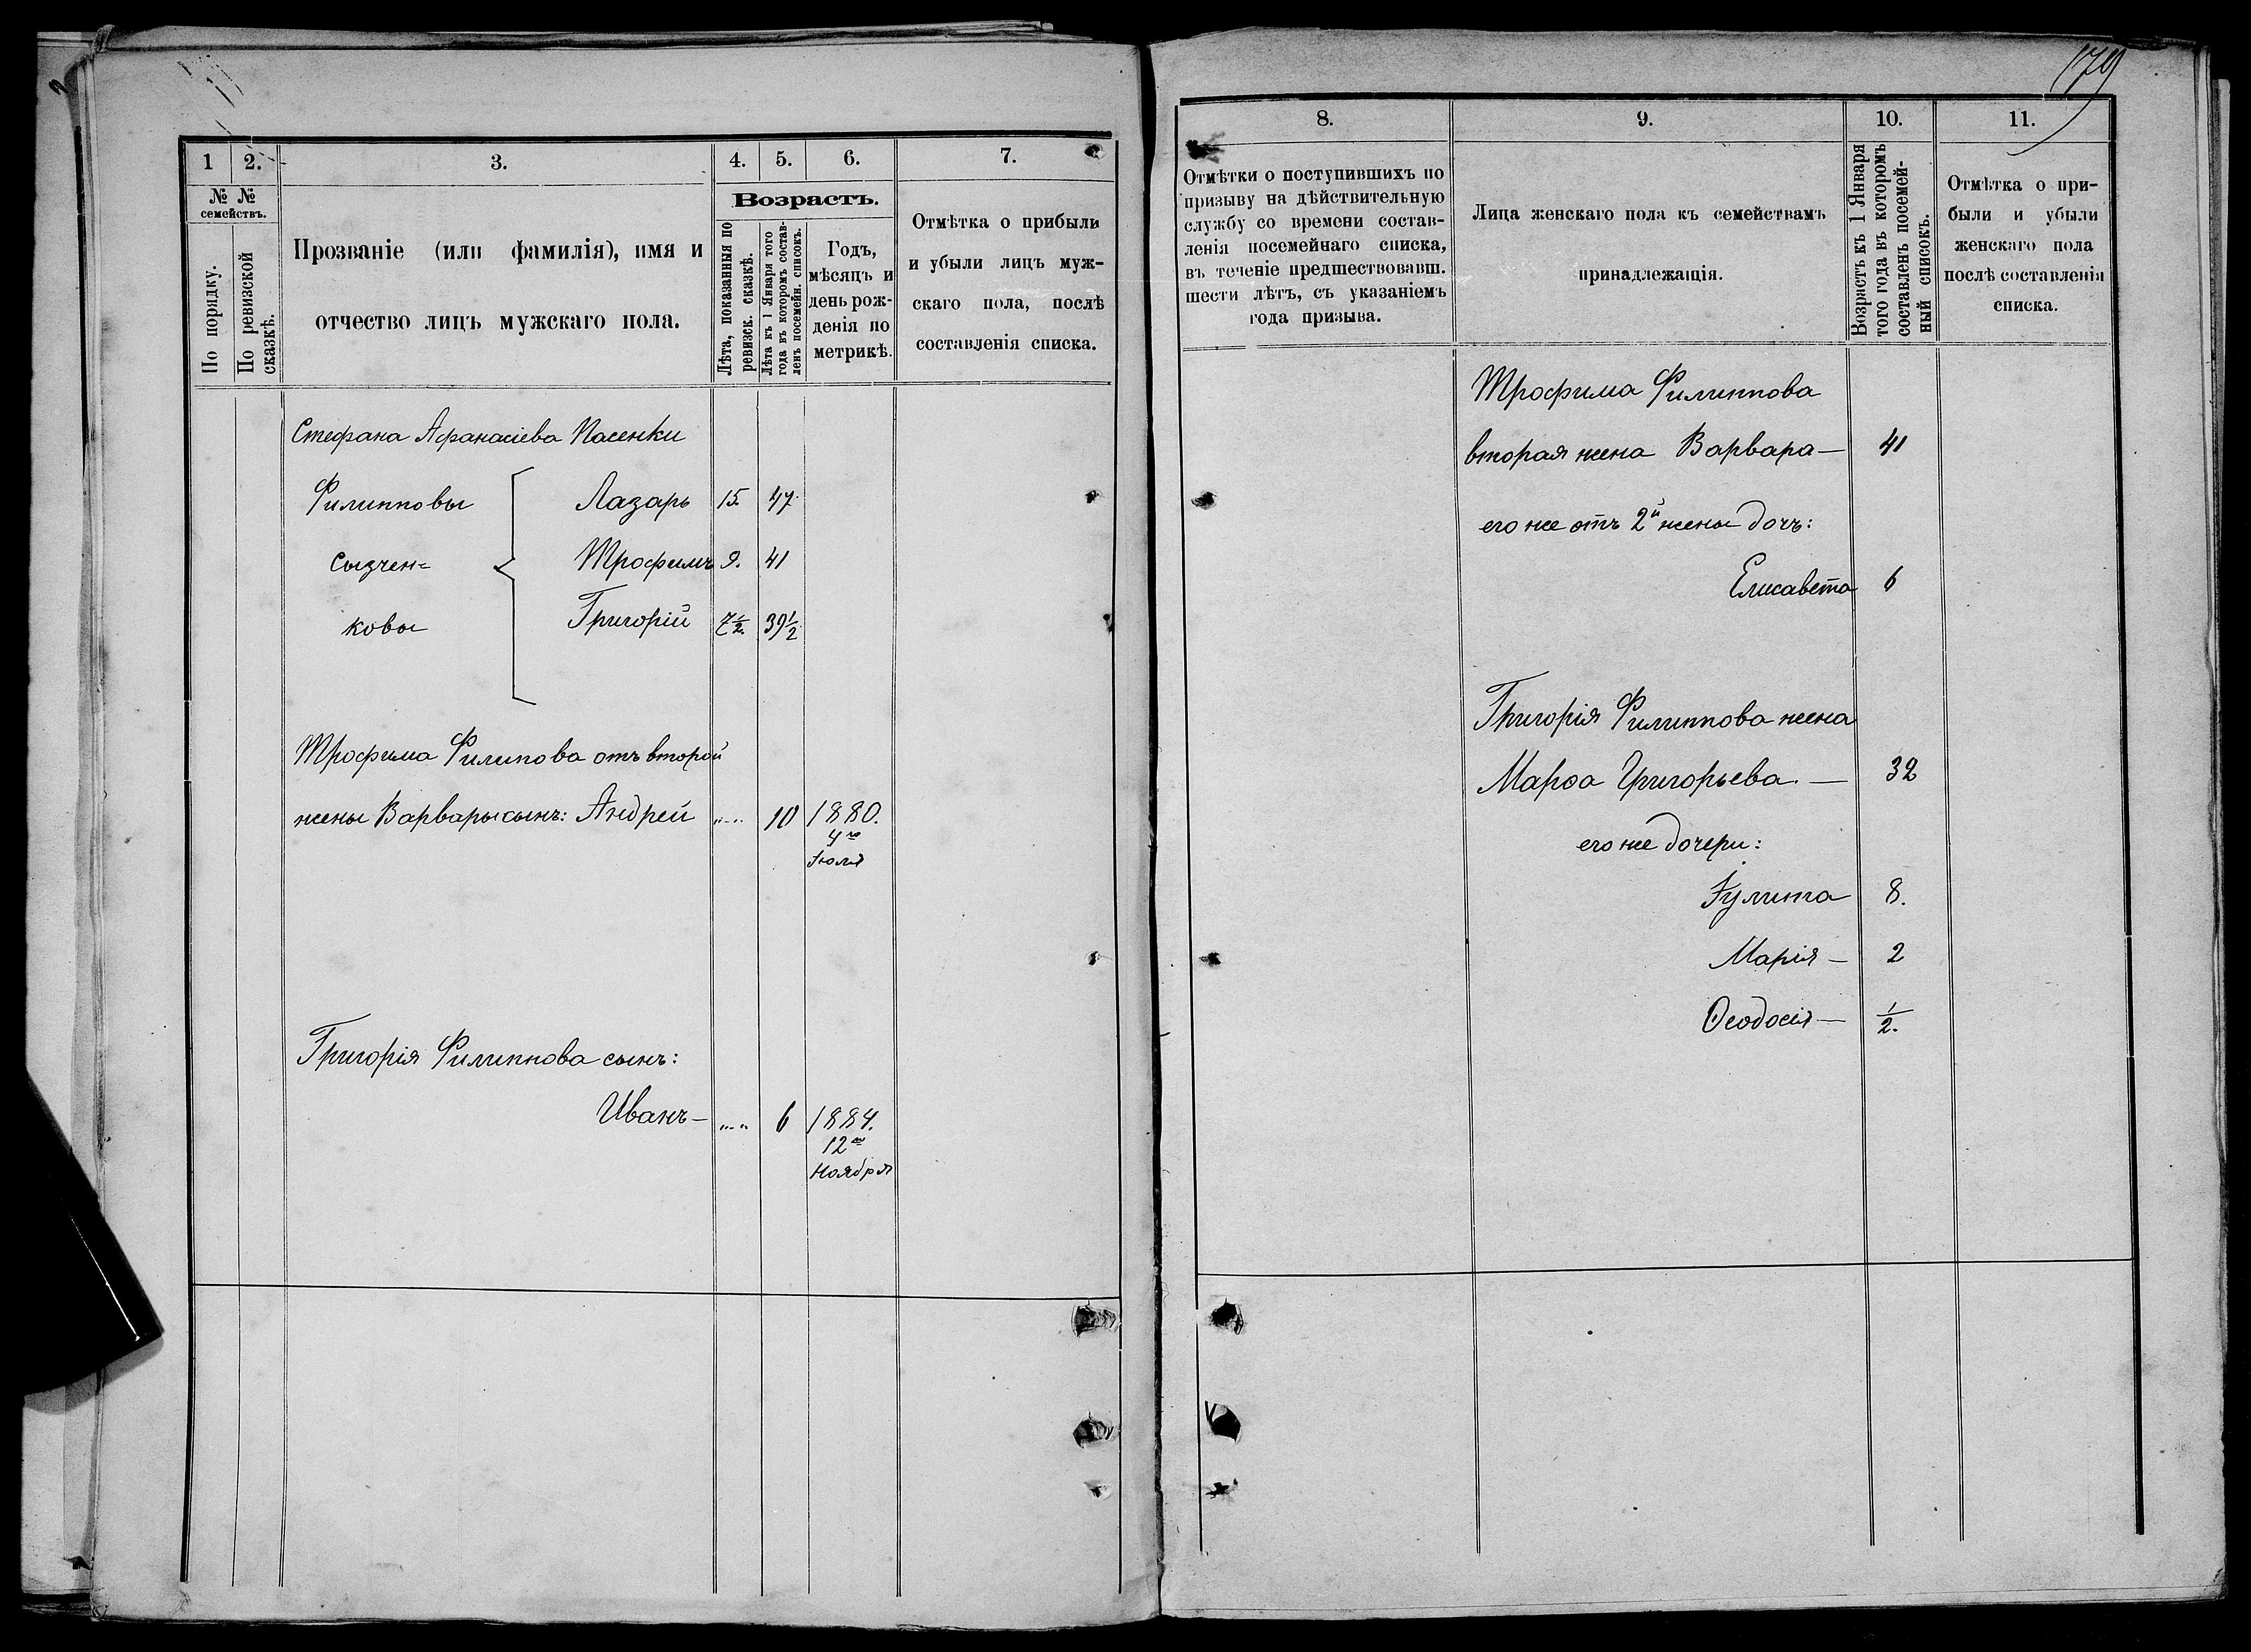 179
1
2.
3.
4.
5.
6.
7.
№ №
семействъ.
По порядку.
По ревизской
сказкѣ.
Прозваніе (или фамилія), имя и
отчество лицъ мужскаго пола.
Возрастъ.
Лѣта, показанныя по
ревизск. сказкѣ.
Лѣта къ 1 Января того
года въ которомъ состав-
ленъ посемейн. списокъ.
Годъ,
мѣсяцъ и
день рож-
денія по
метрикѣ.
Отмѣтка о прибыли
и убыли лицъ муж-
скаго пола, послѣ
составленія списка.
Стефана Афанасіева Пасенки
Филипповы Лазарь 15. 47.
Сызчен= Трофимъ 9. 41
ковы Григорій 7½. 39½
Трофима Филипова отъ второй
жены Варвары сынъ: Андрей „-„ 10 1880.
4го
Іюля
Григорія Филиппова сынъ:
Иванъ — „-„ 6 1884.
12го
Ноября
8.
9.
10.
11.
Отмѣтки о поступившихъ по
призыву на дѣйствительную
службу со времени состав-
ленія посемейнаго списка,
въ теченіе предшествовавш.
шести лѣтъ, съ указаніемъ
года призыва.
Лица женскаго пола къ семействамъ
принадлежащія.
Возрастъ къ 1 Января
того года въ которомъ
составленъ посемей-
ный списокъ.
Отмѣтка о при-
были и убыли
женскаго пола
послѣ составленія
списка.
Трофима Филиппова
вторая жена Варвара — 41
его же отъ 2й жены дочь:
Елисавета 6
Григорія Филиппова жена
Марѳа Григорьева. — 32
его же дочери:
Іулита 8.
Марія — 2
Ѳеодосія — ½.